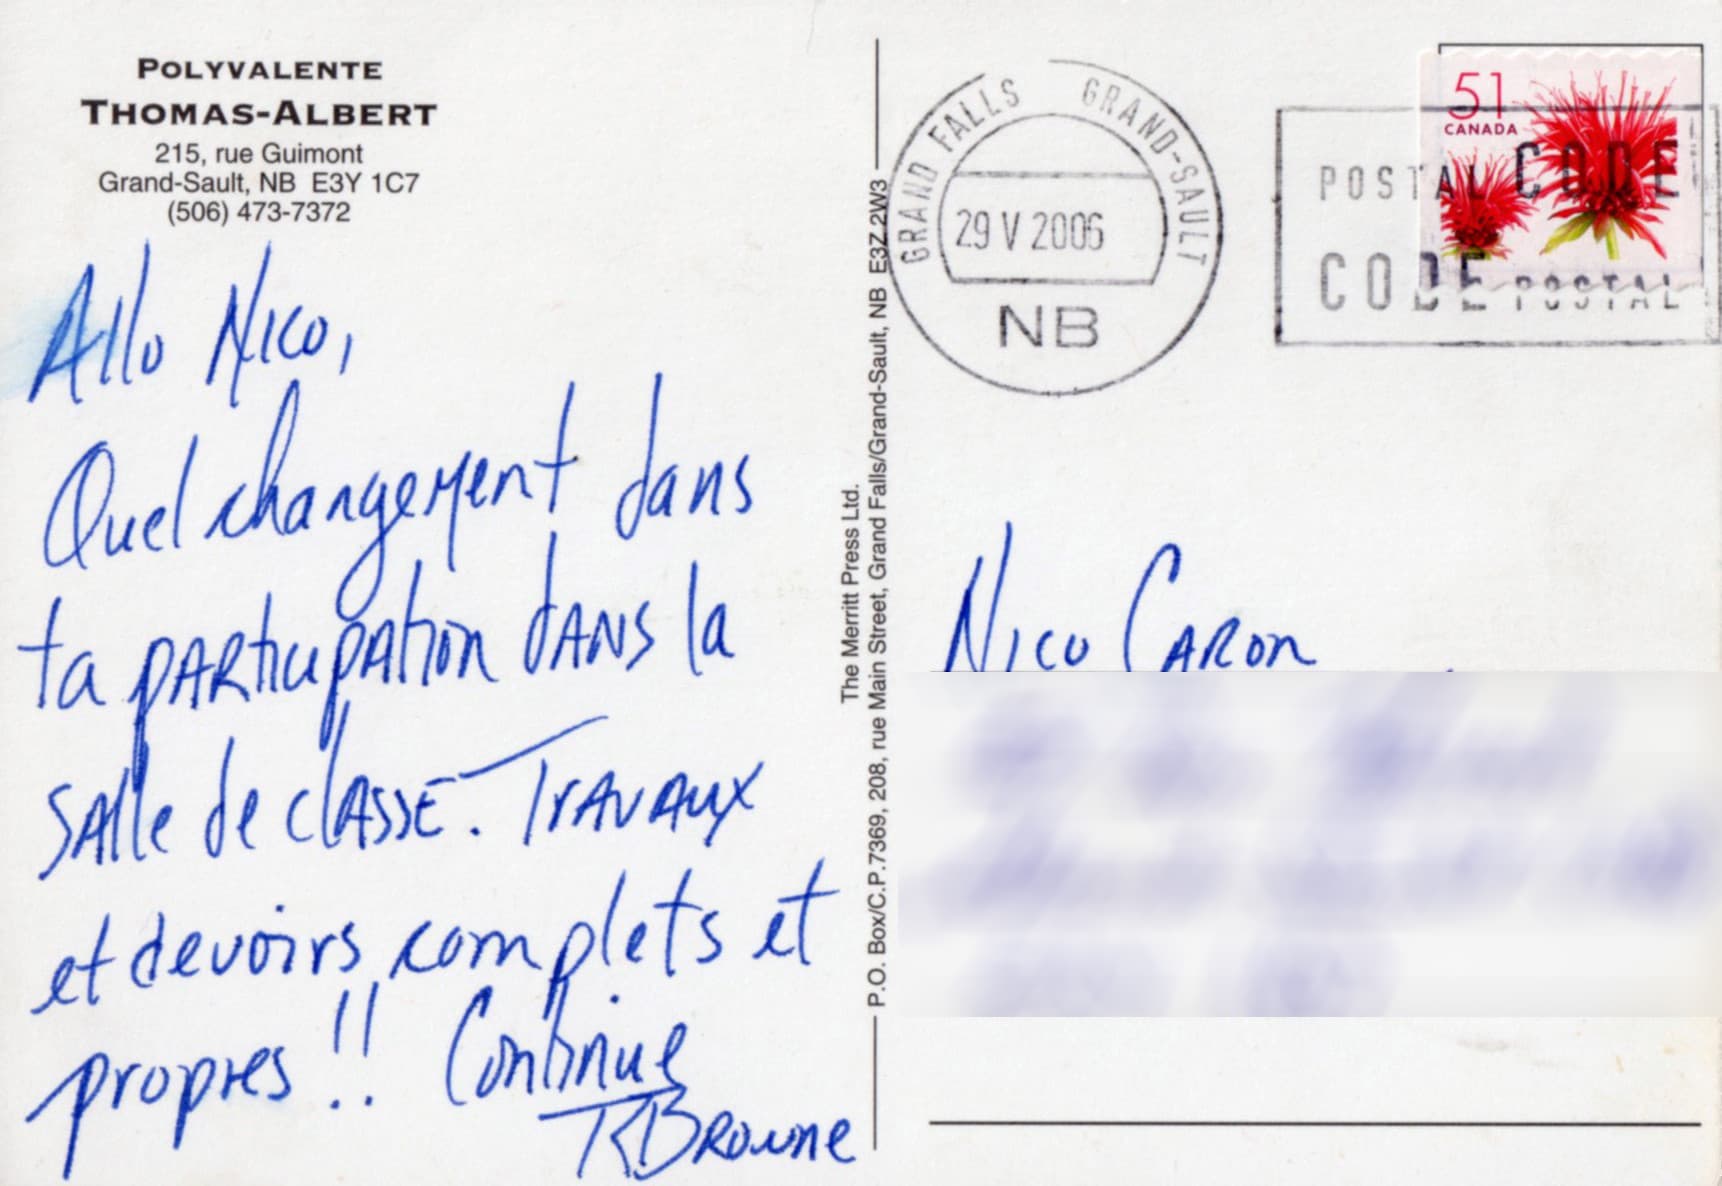 POLYVALENTE
THOMAS-ALBERT
215, rue Guimont
Grand-Sault, NB E3Y 1C7
(506) 473-7372
Allo Nico,
Quel changement dans
ta participation dans la
salle de classe. Travaux
et devoirs complets et
propres !! Continue
RBrowne
The Merritt Press Ltd.
P.O. Box/C.P.7369, 208, rue Main Street, Grand Falls/Grand-Sault, NB E3Z 2W3
GRAND FALLS GRAND-SAULT
29 V 2006
NB
51
CANADA
POSTAL CODE
CODE POSTAL
Nico Caron